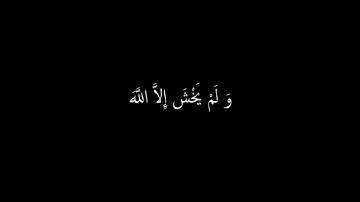 وَ لَمْ يَخْشَ إِلاَّ اللَّهَ